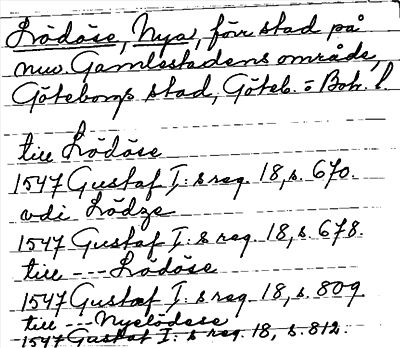 Lödöse, Nya, förr stad på
nuv. Gamlestadens område,
Göteborgs stad, Göteb. = Boh. l.
till Lödöse
1547 Gustaf I: s reg. 18, s. 670.
vdi Lödze
1547 Gustaf I: s reg. 18, s. 678.
till --- Lödöse
1547 Gustaf I: s reg. 18, s. 809
till --- Nyelödese
1547 Gustaf I: s reg. 18, s. 812.